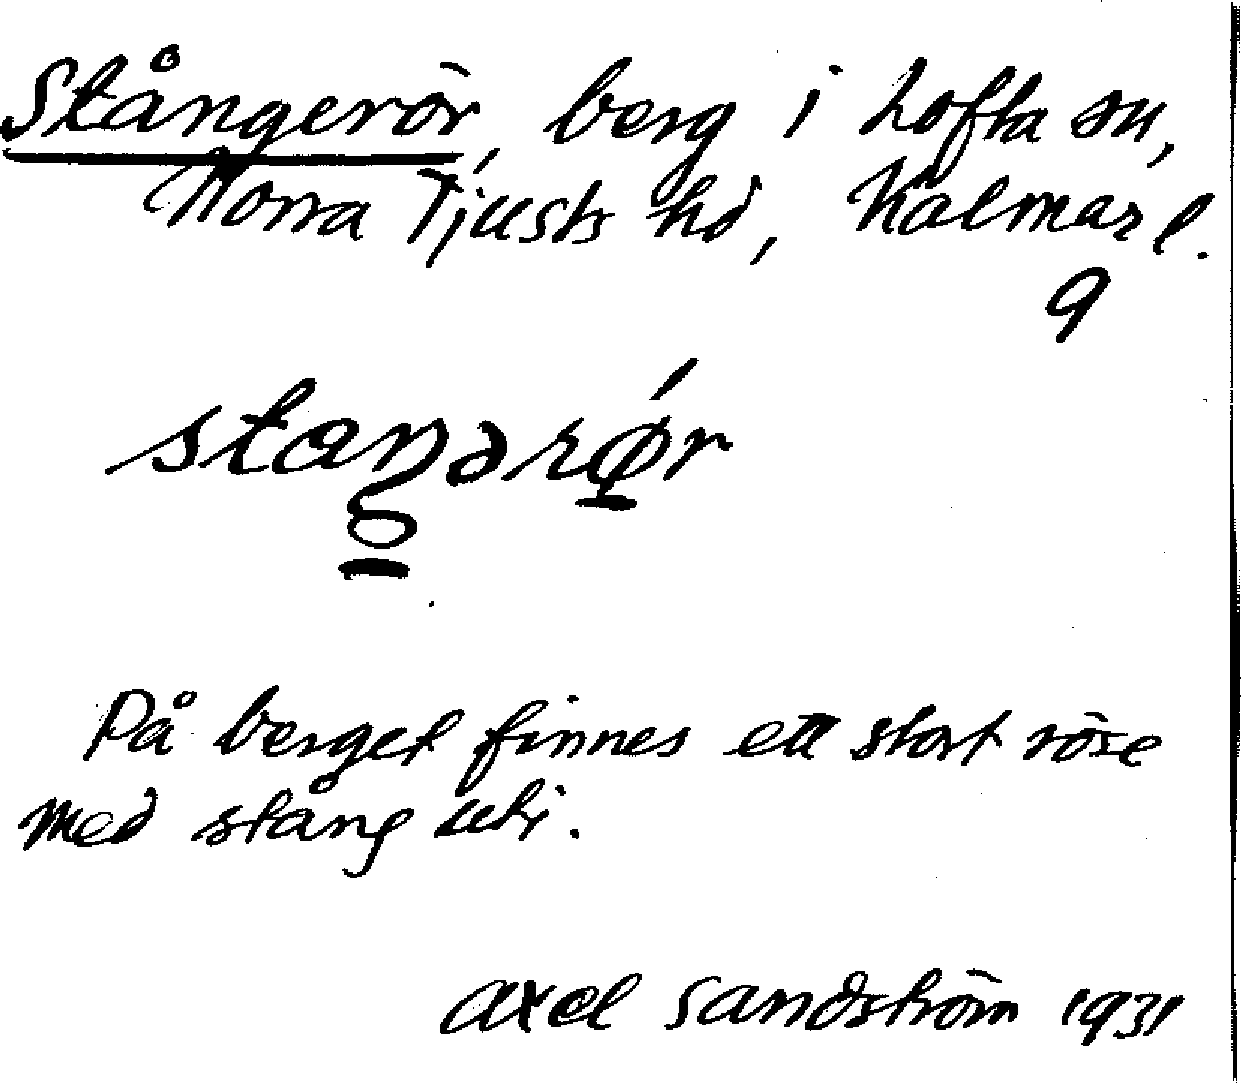 Stångerör, berg i Lofta sn,
Norra Tjusts hd, Kalmar l.
9
staŋərǿ̱r
På berget finnes ett stort röse
med stång uti.
Axel Sandström 1931